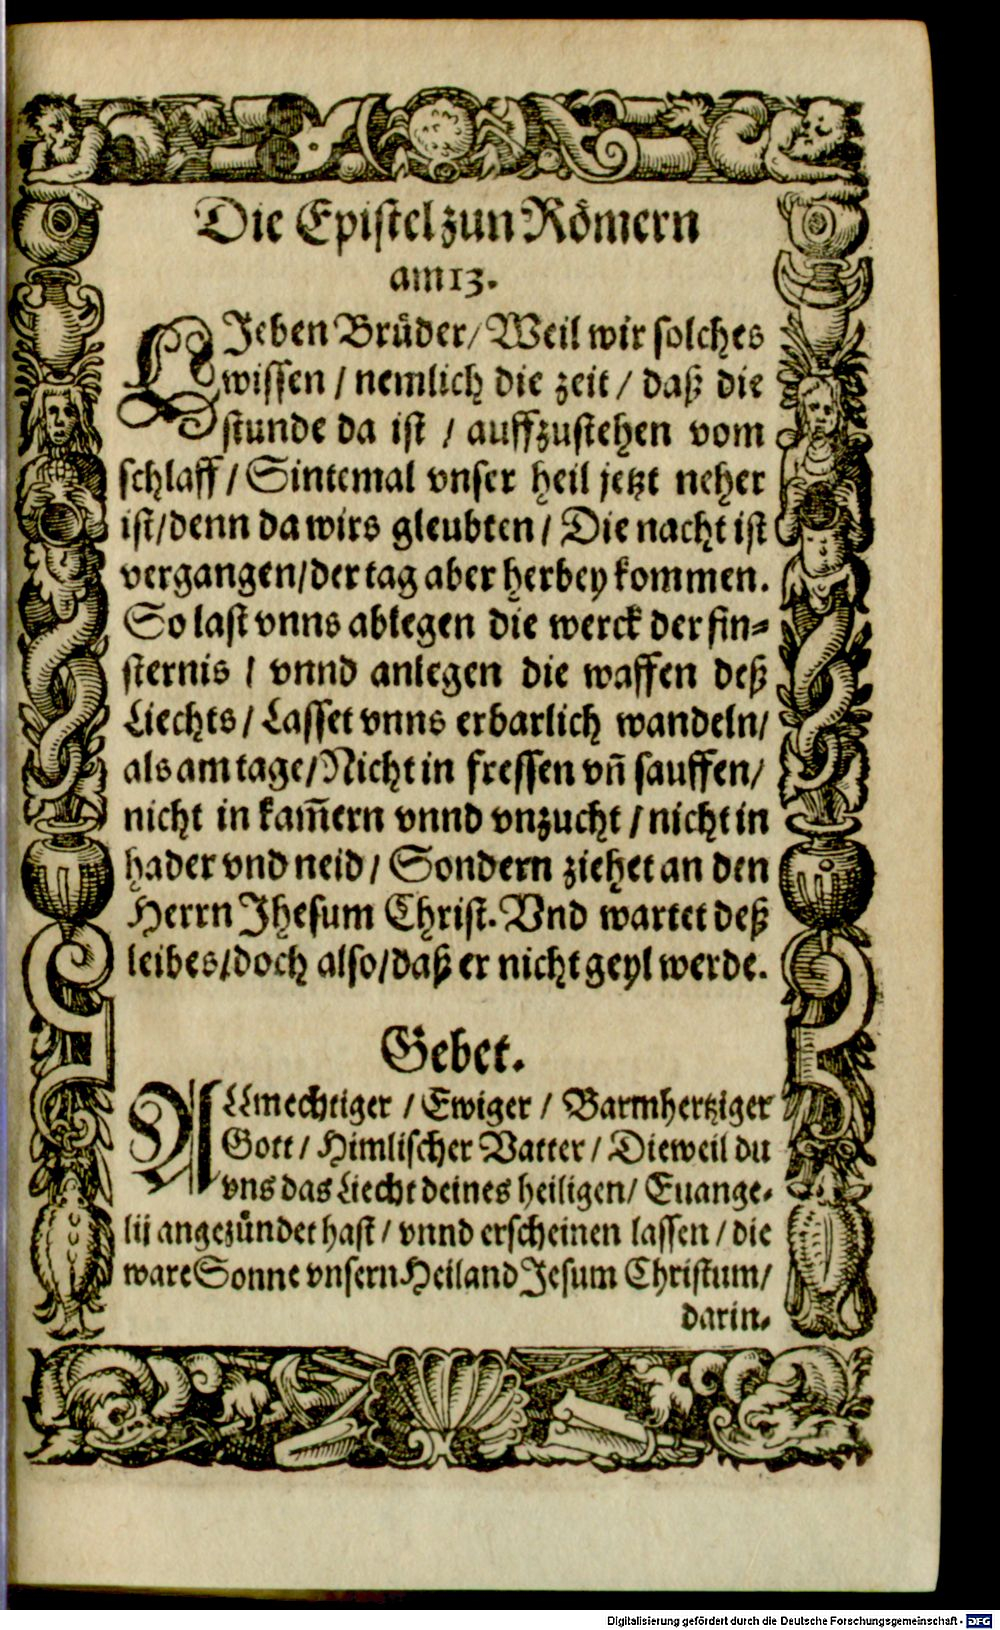 Die Epistel zun Römern
am 13.
LJeben Brüder/ Weil wir solches
wissen / nemlich die zeit / daß die
stunde da ist / auffzustehen vom
schlaff / Sintemal vnser heil jetzt neher
ist/denn da wirs gleubten / Die nacht ist
vergangen/der tag aber herbey kommen.
So last vnns ablegen die werck der fin-
sternis / vnnd anlegen die waffen deß
Liechts / Lasset vnns erbarlich wandeln/
als am tage/Nicht in fressen vñ sauffen/
nicht in kam̃ern vnnd vnzucht / nicht in
hader vnd neid / Sondern ziehet an den
Herrn Jhesum Christ. Vnd wartet deß
leibes/doch also/daß er nicht geyl werde.
Gebet.
ALlmechtiger / Ewiger / Barmhertziger
Gott / Himlischer Vatter / Dieweil du
vns das Liecht deines heiligen/ Euange-
lij angezündet hast / vnnd erscheinen lassen / die
ware Sonne vnsern Heiland Jesum Christum/
darin-
Digitalisierung gefördert durch die Deutsche Forschungsgemeinschaft - DFG